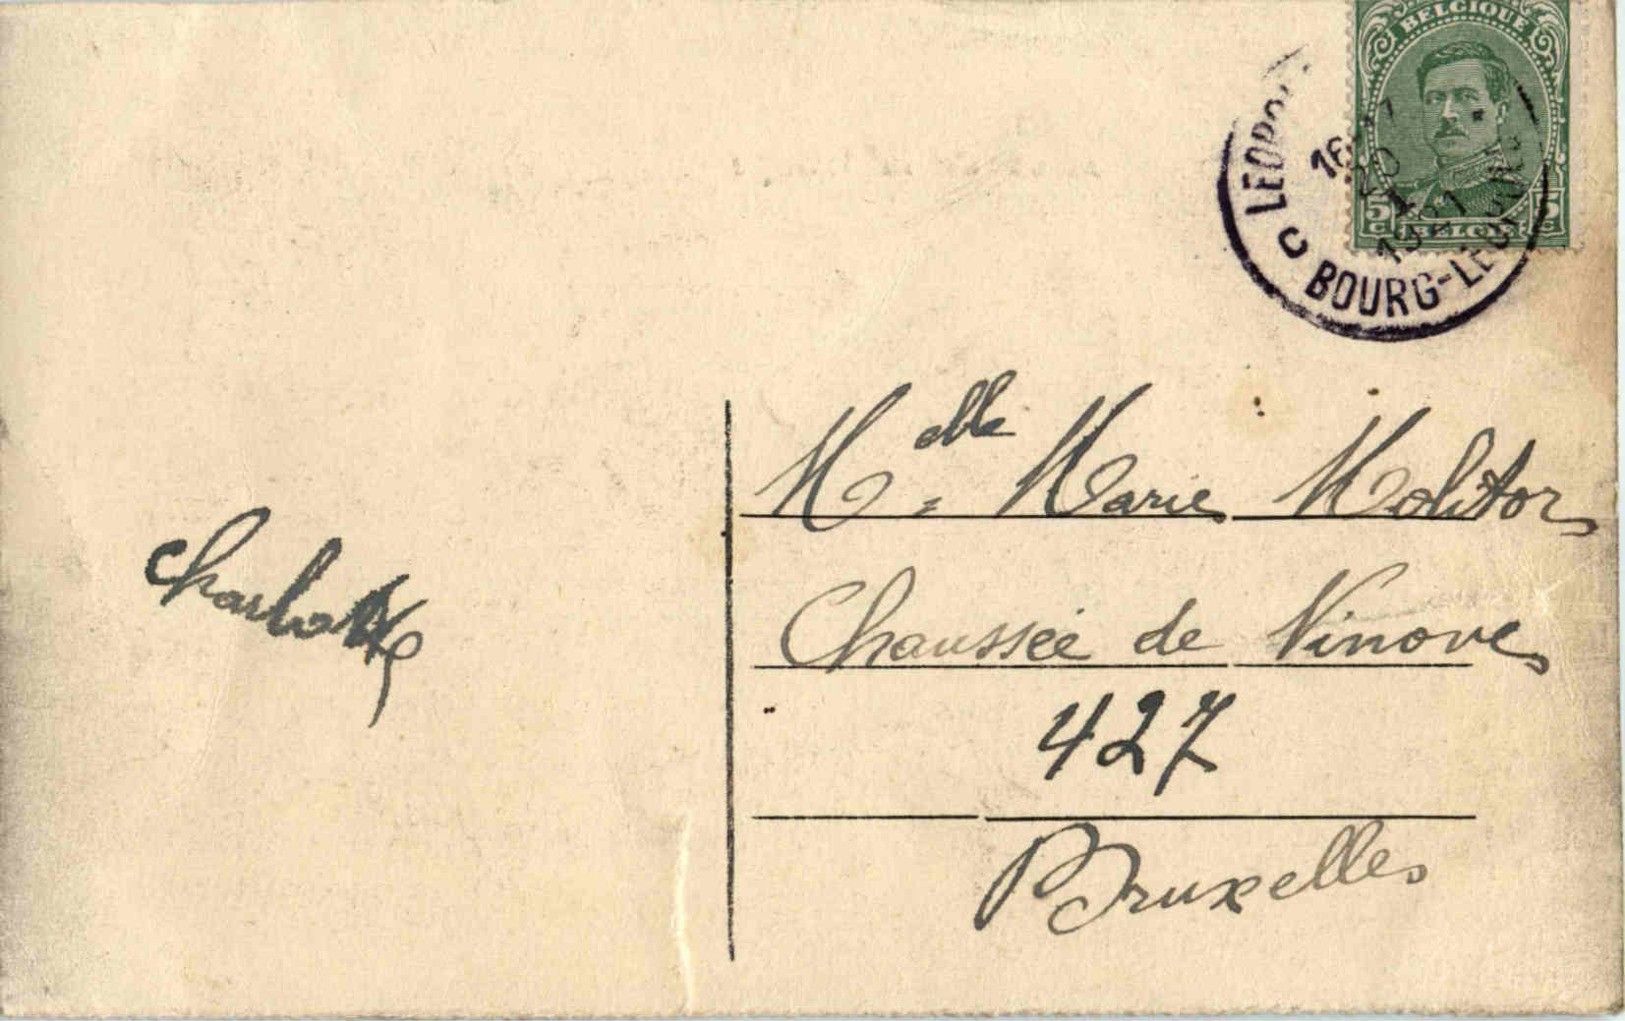 BELGIQUE
5c BELGIË 5c
16-17
20
1
1921
C BOURG-LEOPOLD
Charlotte
Melle Marie Molitor
Chaussée de Ninove
427
Bruxelles